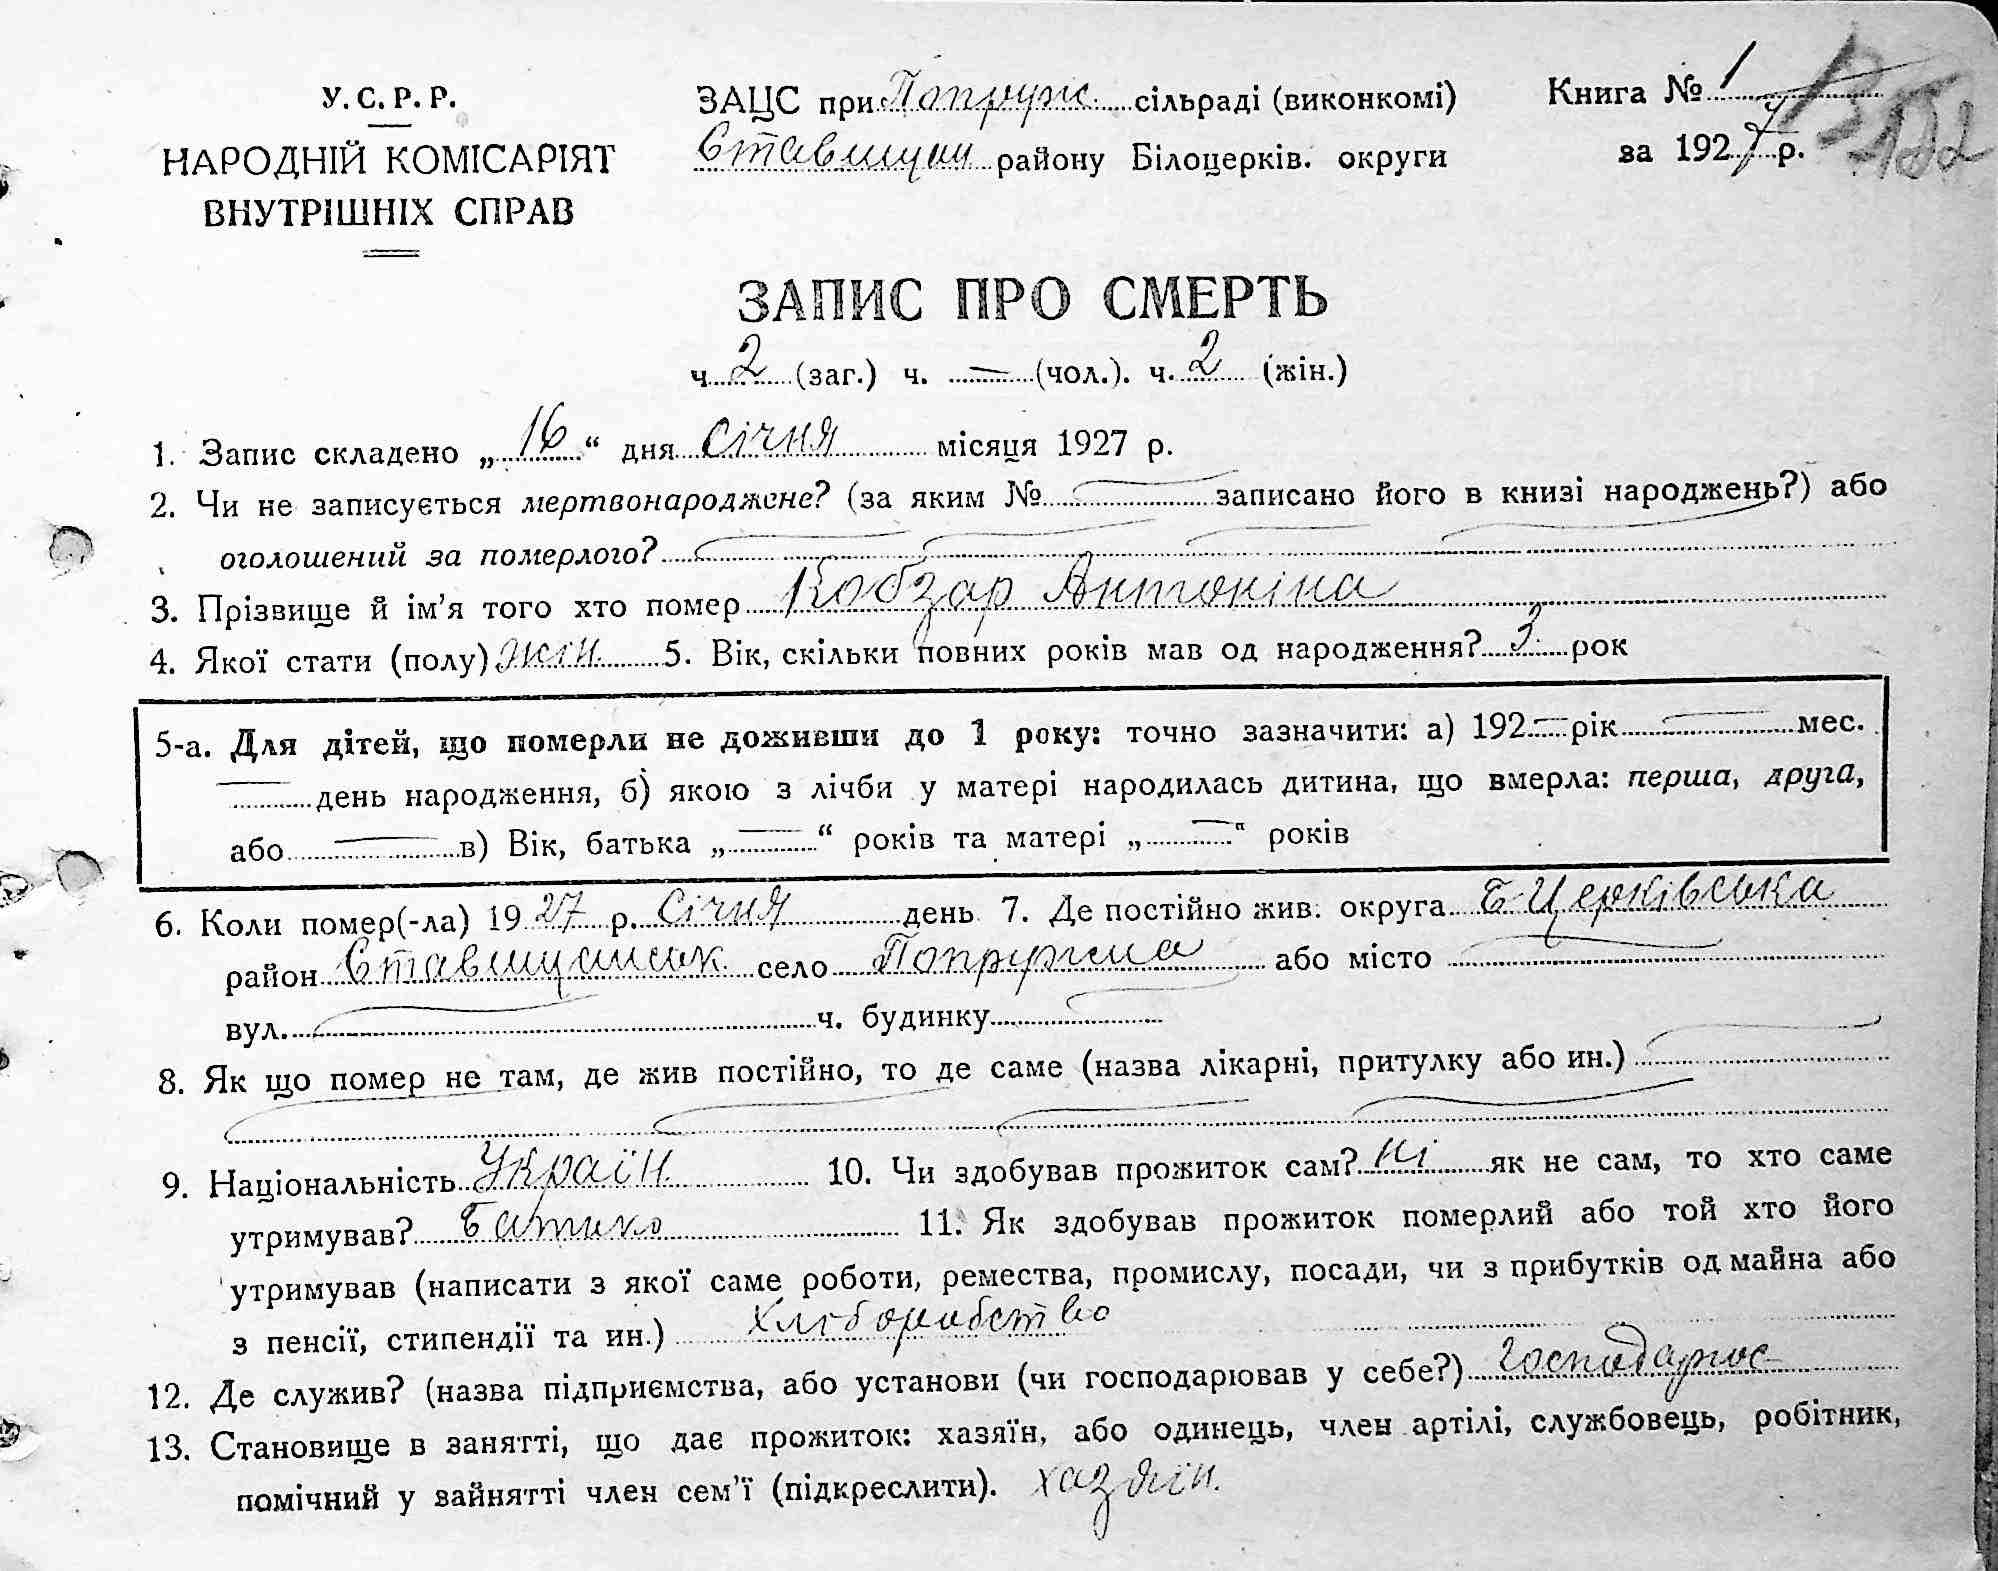 У. С. Р. Р.
НАРОДНІЙ КОМІСАРІЯТ
ВНУТРІШНІХ СПРАВ
ЗАЦС при Попруж. сільраді (виконкомі)
Ставищан. району Білоцерків. округи
Книга № 1
за 1927 р.
152
ЗАПИС ПРО СМЕРТЬ
ч. 2 (заг.) ч. — (чол.). ч. 2 (жін.)
1. Запис складено „ 16 “ дня січня місяця 1927 р.
2. Чи не записується мертвонароджене? (за яким № — записано його в книзі народжень?) або
оголошений за померлого?
3. Прізвище й ім’я того хто помер Кобзар Антоніна
4. Якої стати (полу) жін. 5. Вік, скільки повних років мав од народження? 3 рок
5-а. Для дітей, що померли не доживши до 1 року: точно зазначити: а) 192 — рік — мес.
— день народження, б) якою з лічби у матері народилась дитина, що вмерла: перша, друга,
або — в) Вік, батька „ — “ років та матері „ — “ років
6. Коли помер(-ла) 1927 р. січня день 7. Де постійно жив. округа Б-Церківська
район Ставищанськ. село Попружна або місто —
вул. — ч. будинку —
8. Як що помер не там, де жив постійно, то де саме (назва лікарні, притулку або ин.) —
9. Національність Україн. 10. Чи здобував прожиток сам? ні як не сам, то хто саме
утримував? Батько 11. Як здобував прожиток померлий або той хто його
утримував (написати з якої саме роботи, ремества, промислу, посади, чи з прибутків од майна або
з пенсії, стипендії та ин.) Хліборобство
12. Де служив? (назва підприємства, або установи (чи господарював у себе?)
13. Становище в занятті, що дає прожиток: хазяїн, або одинець, член артілі, службовець, робітник,
помічний у зайнятті член сем’ї (підкреслити). хазяїн.